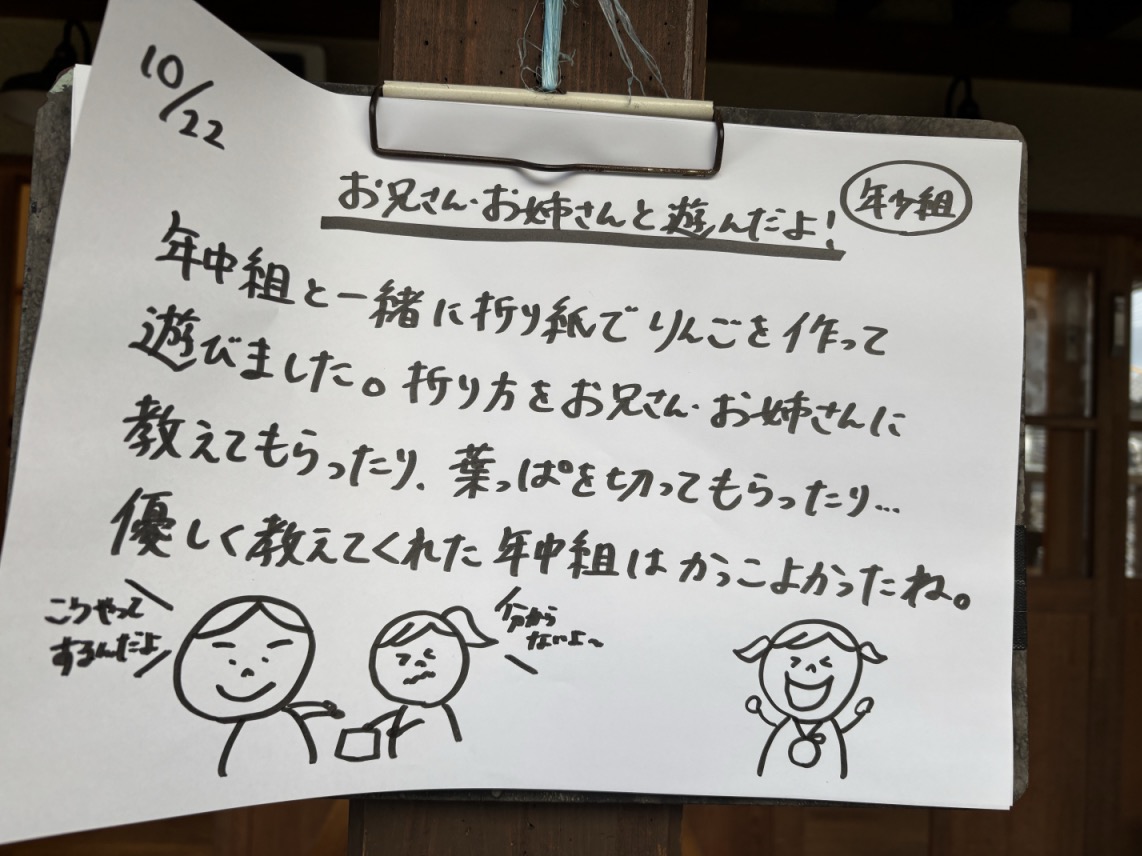 10/22
お兄さん・お姉さんと遊んだよ!
年少組
年中組と一緒に折り紙でりんごを作って
遊びました。折り方をお兄さん・お姉さんに
教えてもらったり、葉っぱを切ってもらったり…
優しく教えてくれた年中組はかっこよかったね。
こうやって
するんだよ
分から
ないよ〜